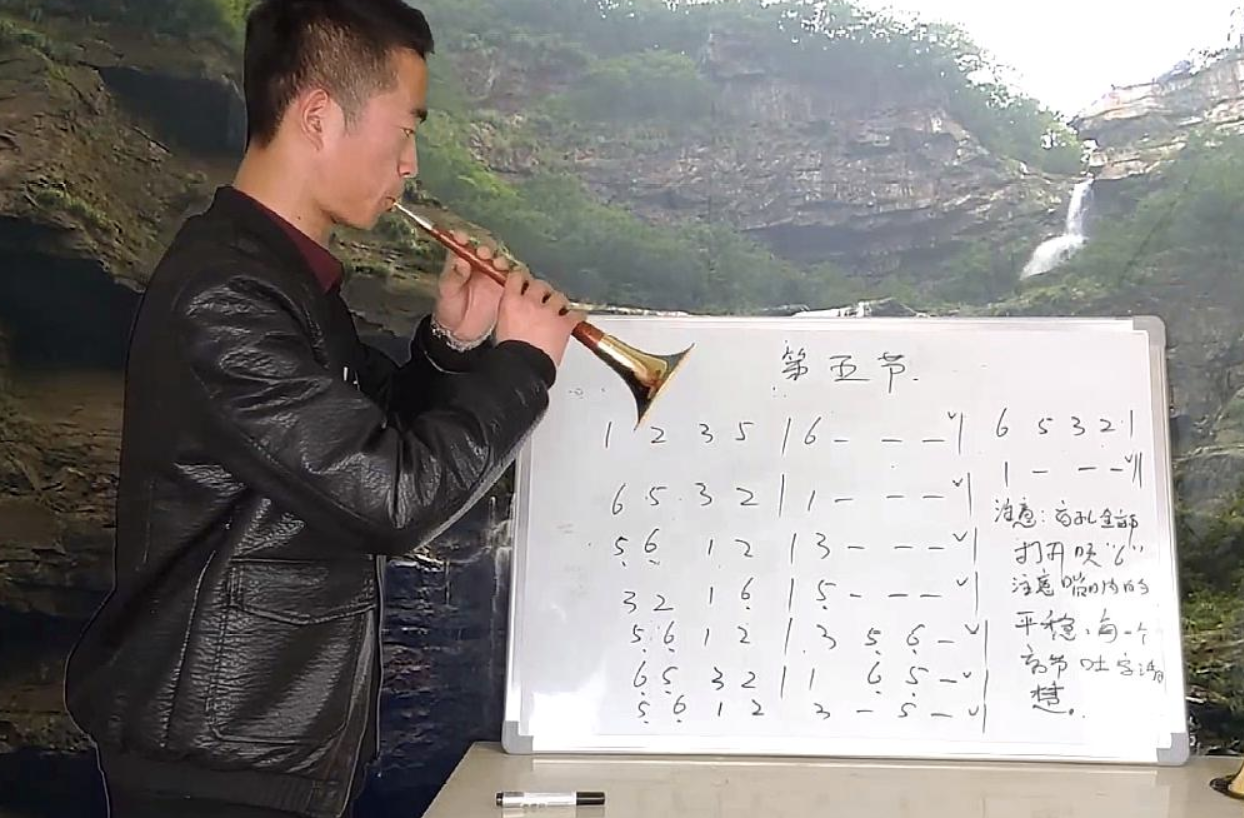 第五节.
1 2 3 5 | 6 - - - ˅|
6 5 3 2 | 1 - - - ˅|
5̣ 6̣ 1 2 | 3 - - - ˅|
3 2 1 6̣ | 5̣ - - - ˅|
5̣ 6̣ 1 2 | 3 5̣ 6̣ - ˅|
6̣ 5̣ 3 2 | 1 6̣ 5̣ - ˅|
5̣ 6̣ 1 2 3 - 5̣ - ˅|
6 5 3 2 |
1 - - - ˅||
注意: 音孔全部
打开吹“6”
注意
平稳, 每一个
音节吐字清
楚。